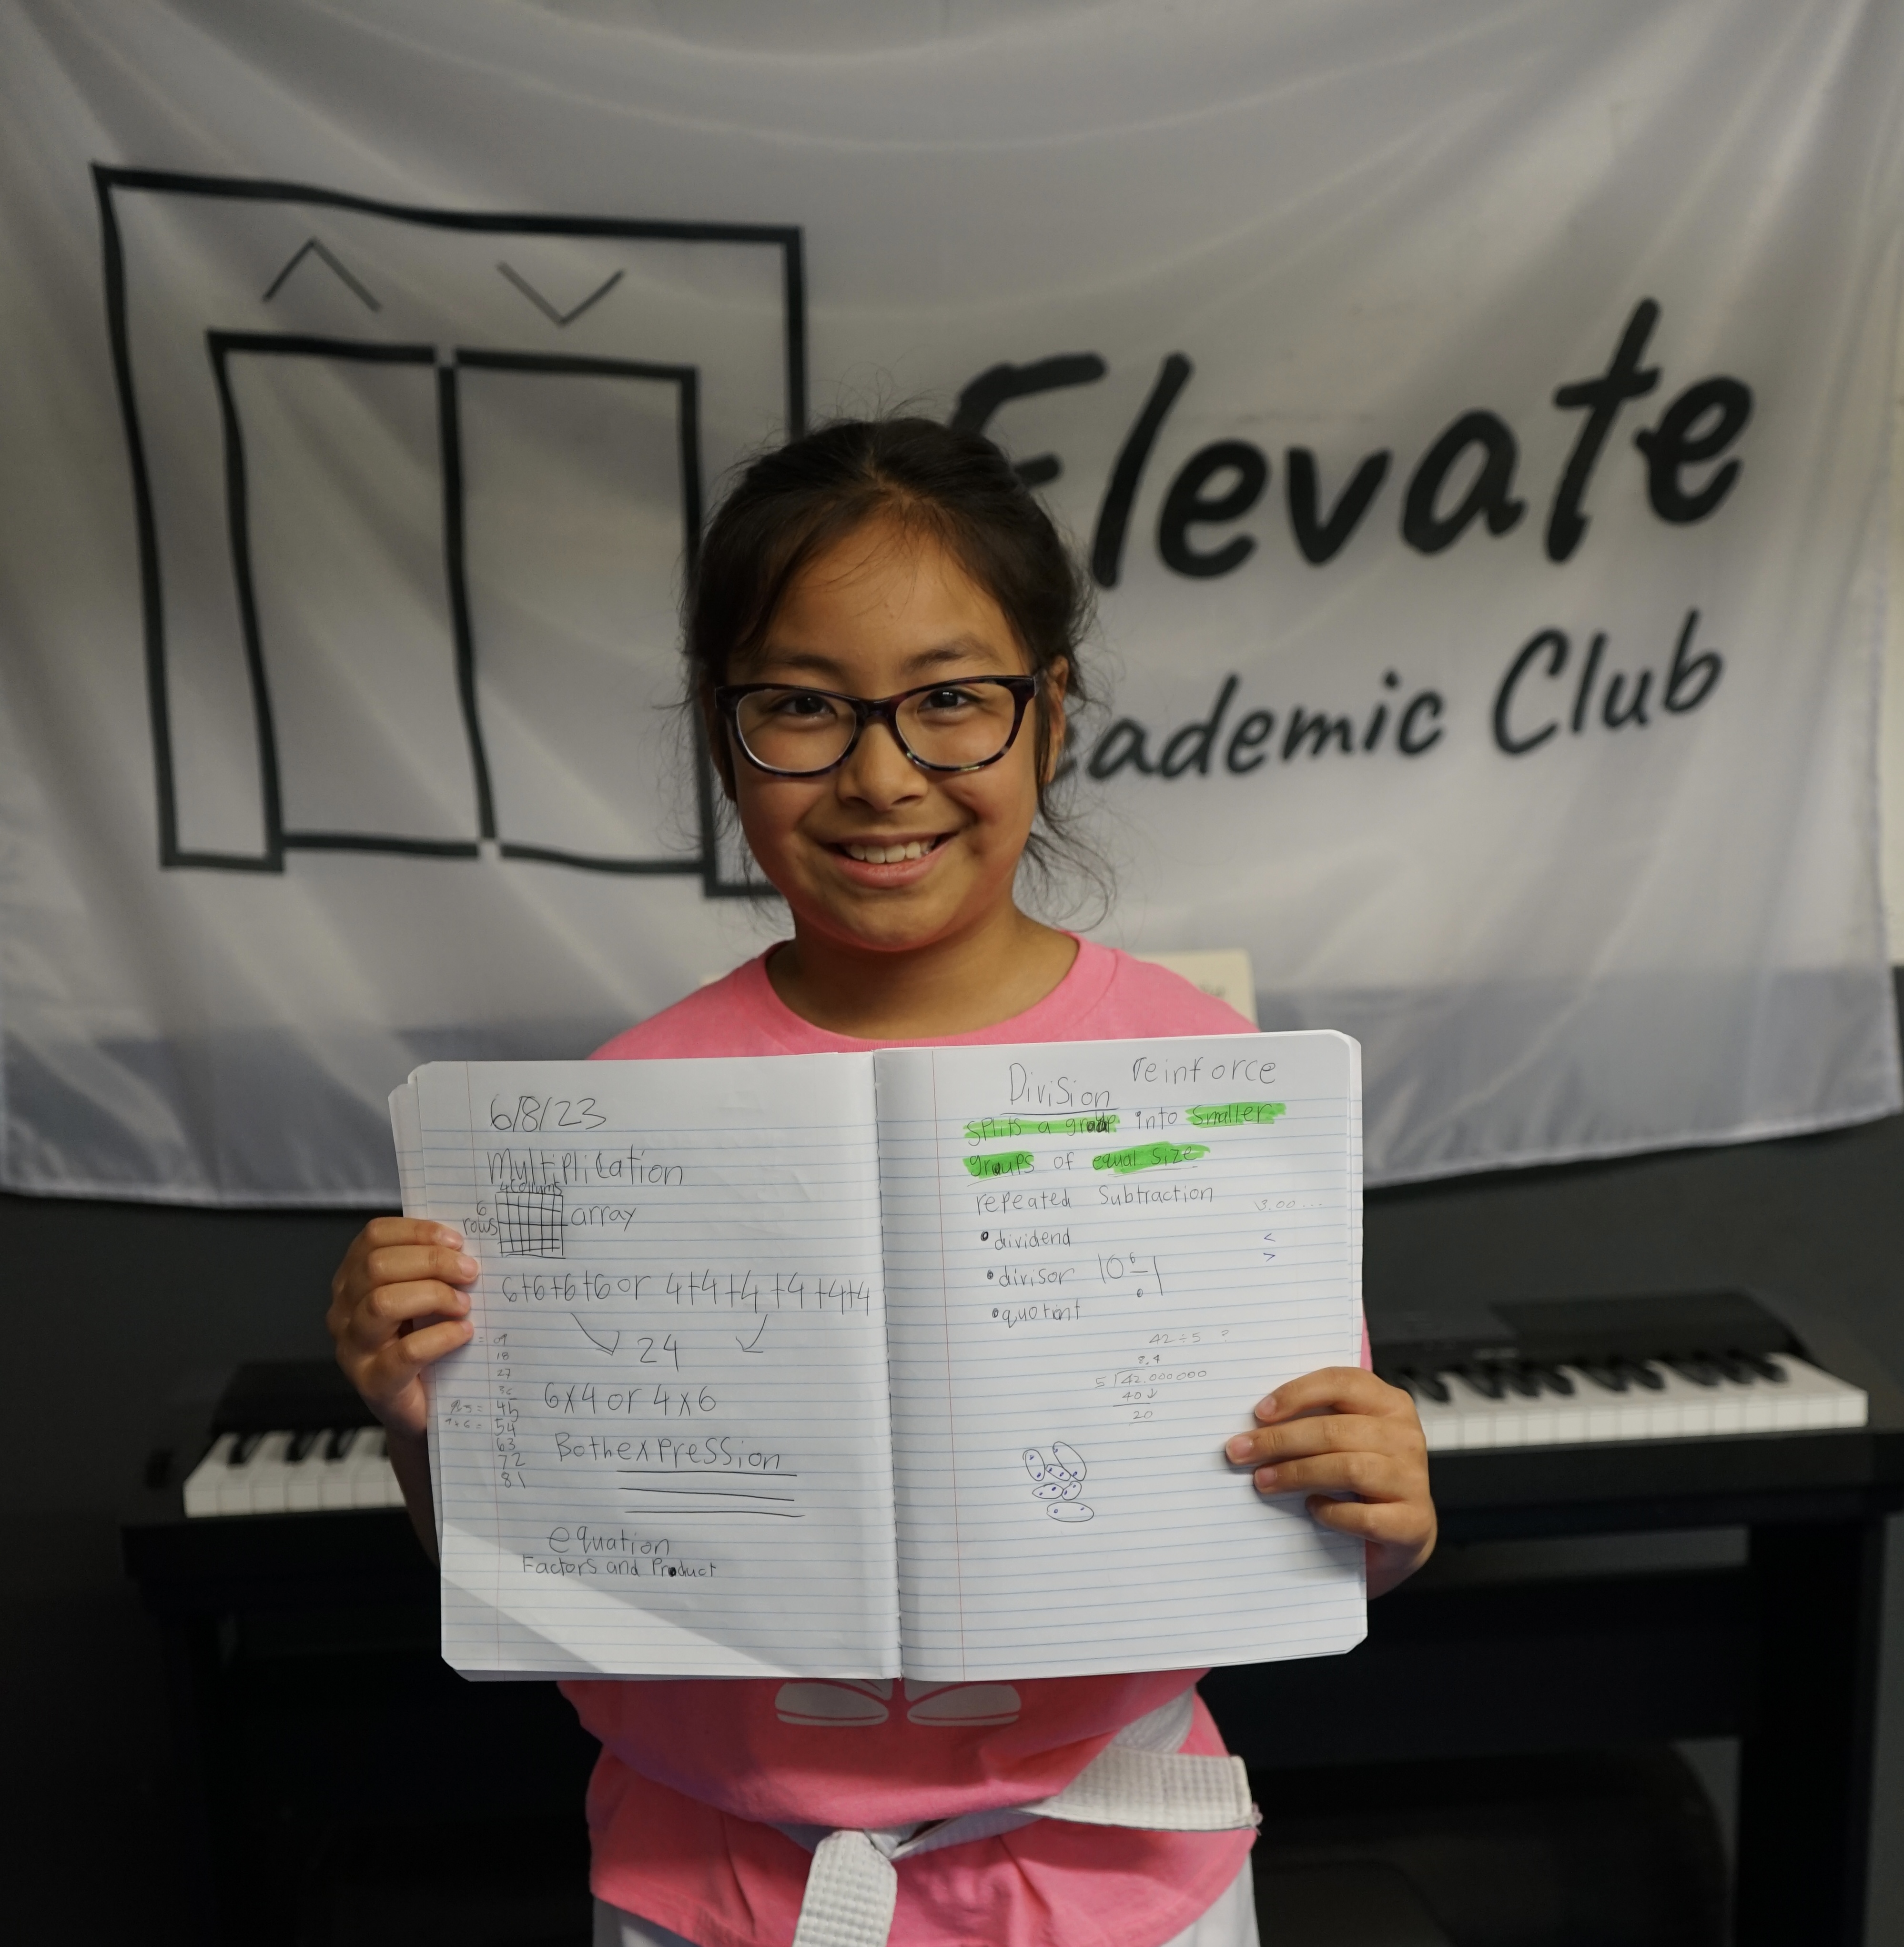 Elevate
ademic Club
6/8/23
Multiplication
6
rows
array
6+6+6+6 or 4+4+4+4+4+4
24
6x4 or 4x6
Both expression
equation
Factors and Product
09
18
27
36
9x5= 45
9x6= 54
63
72
81
Division reinforce
splits a into smaller
groups of equal size
repeated Subtraction
3.00...
• dividend
<
>
• divisor
•
42÷5 =
8.4
5 42.000000
40
20